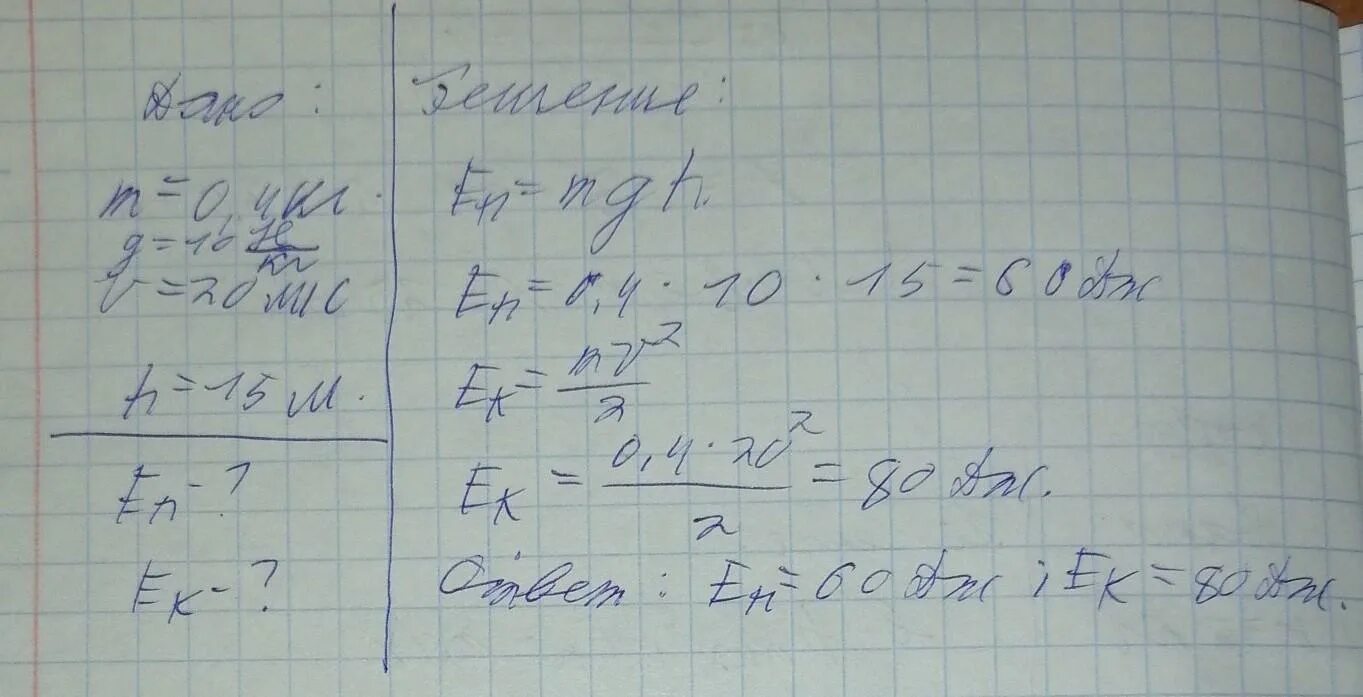 Дано:
m = 0,4 кг.
g = 10 Н/кг
v = 20 м/с
h = 15 м.
Eп - ?
Eк - ?
Решение:
Eп = mgh.
Eп = 0,4 · 10 · 15 = 60 Дж
Eк = mv²/2
Eк = 0,4 · 20²/2 = 80 Дж.
Ответ: Eп = 60 Дж; Eк = 80 Дж.